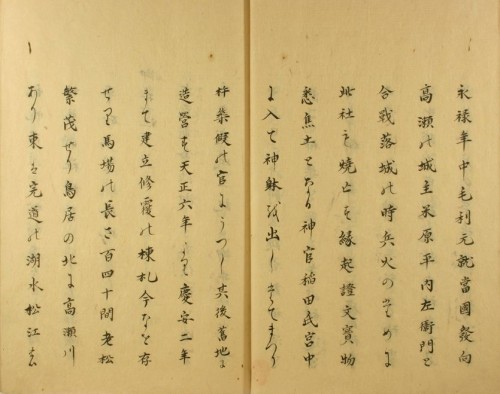 永禄年中毛利元就當國發向
高瀬の城主米原平内左衛門と
合戦落城の時兵火のために
此社も焼亡す縁起證文寶物
悉焦土となる神官稲田氏宮中
に入て神躰を出したてまつり
杵築假の宮にうつし其後舊地に
造營す天正六年より慶安二年
まて建立修覆の棟札今なを存
せり馬場の長さ百四十間老松
繁茂せり鳥居の北に高瀬川
あり東は宍道の湖水松江